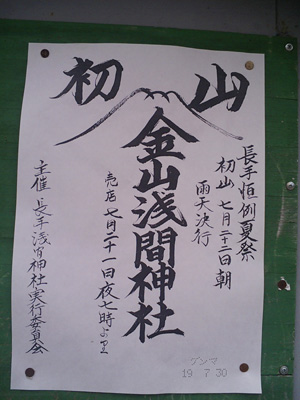 初山
長手恒例夏祭
初山 七月二十二日朝
雨天決行
金山浅間神社
売店 七月二十一日夜七時より
主催 長手浅間神社実行委員会
ゲンマ
19 7 30